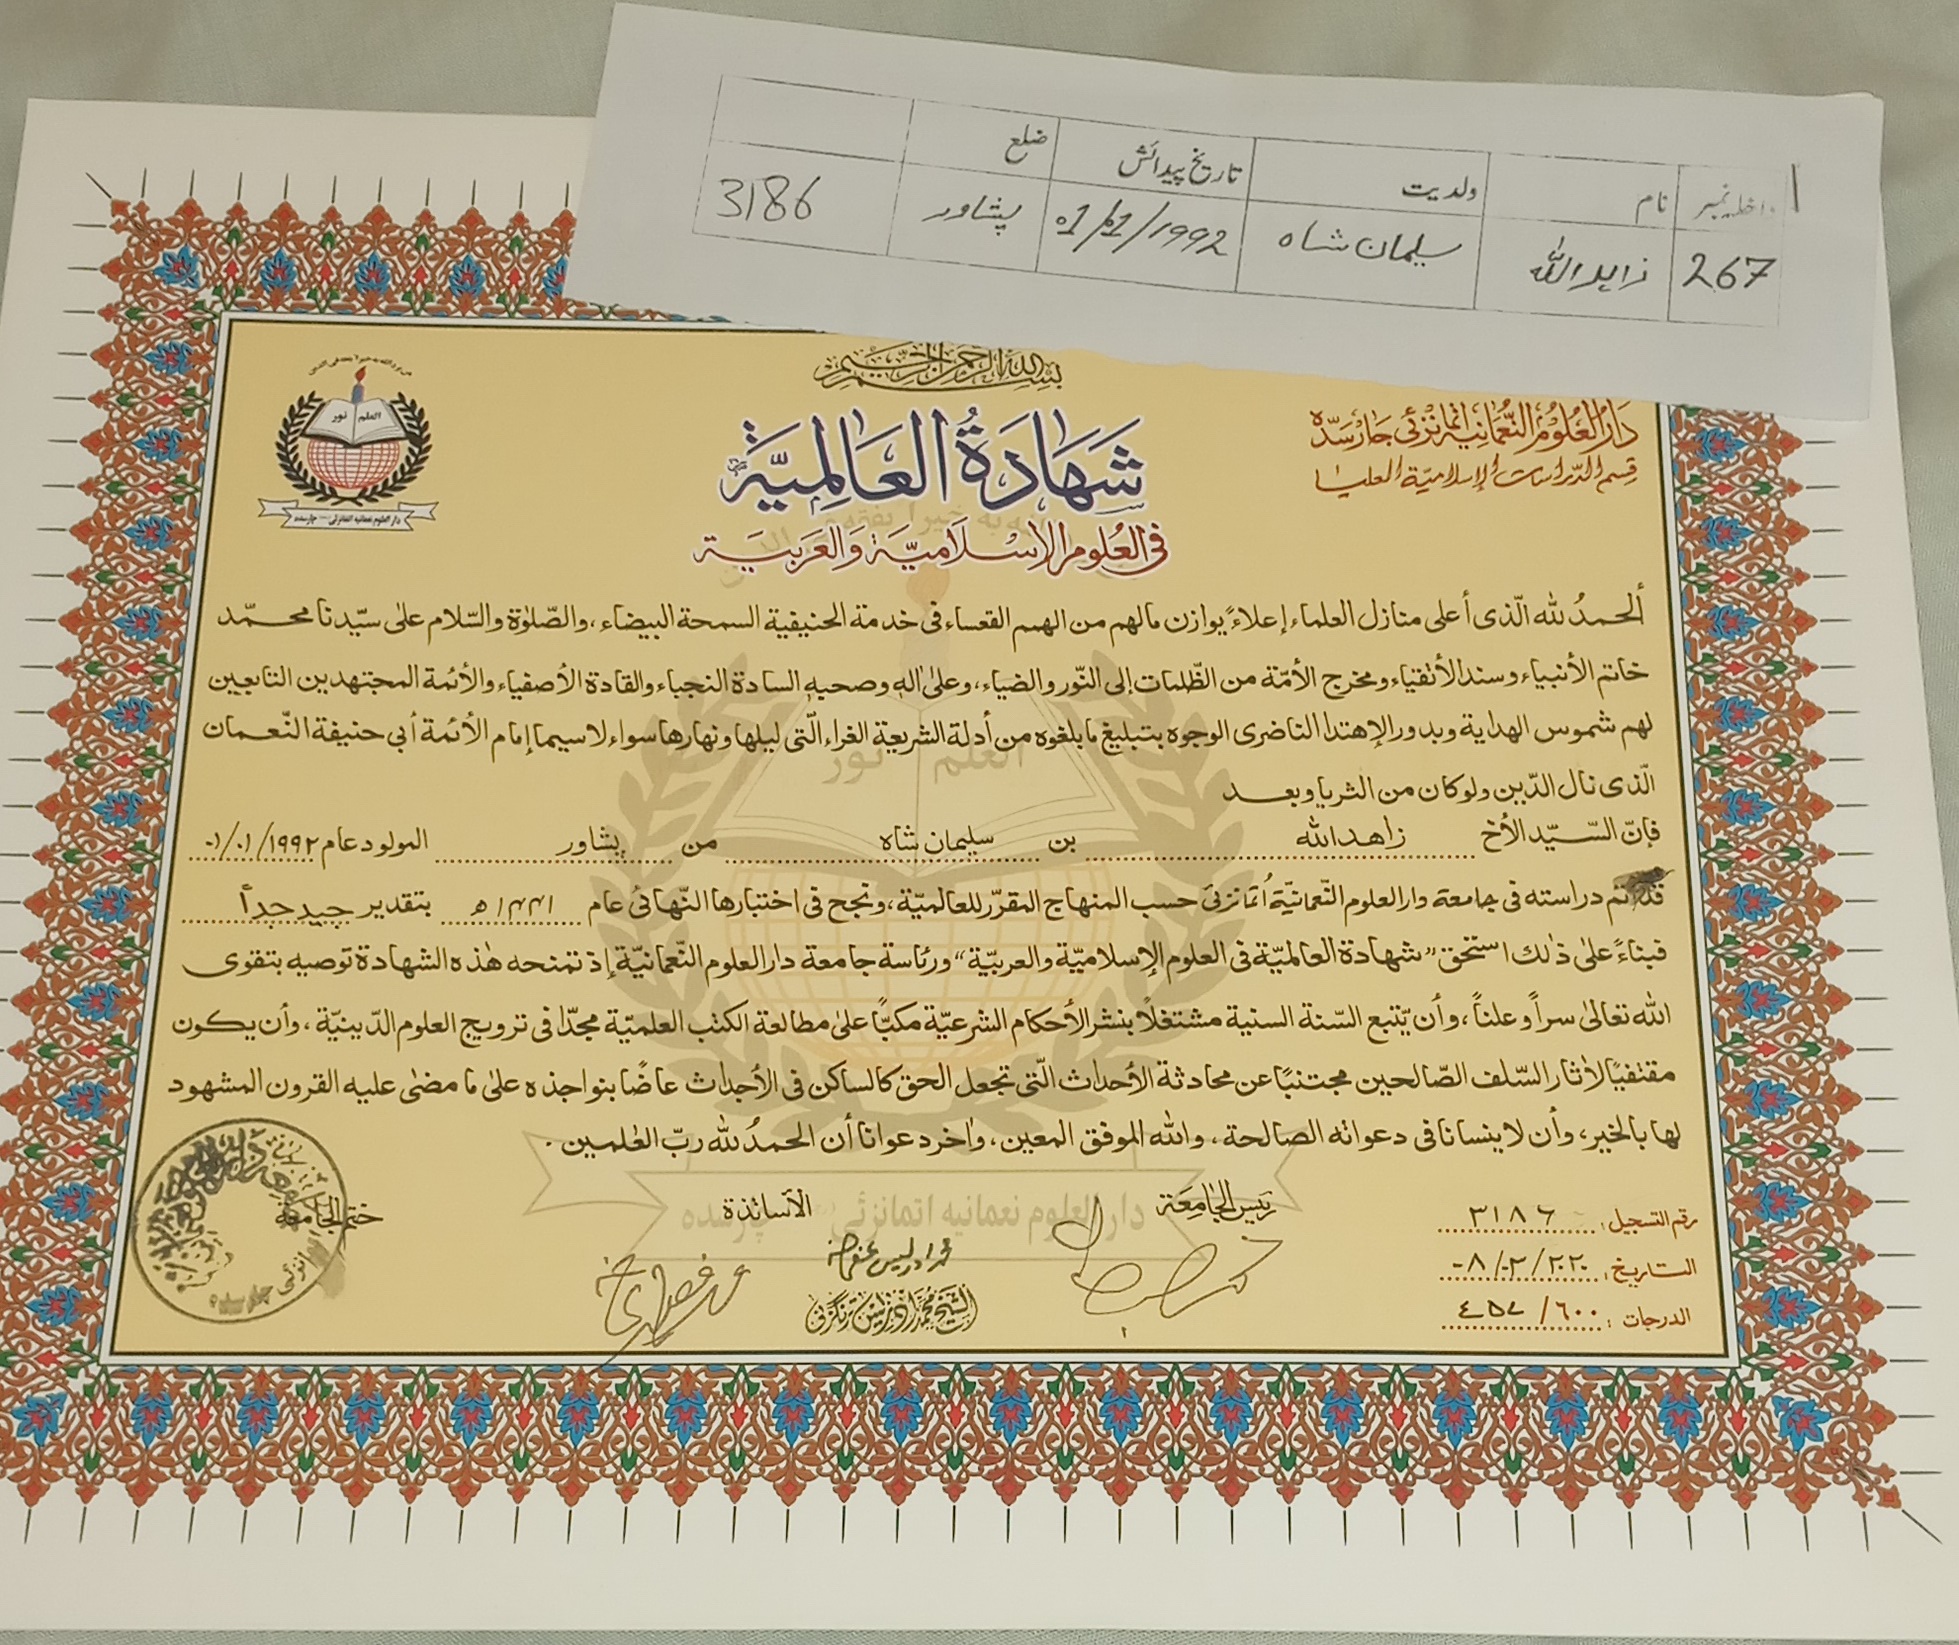 داخلہ نمبر نام ولدیت تاریخ پیدائش ضلع
267 زاہد اللہ سلیمان شاہ 01/01/1992 پشاور 3186
بسم الله الرحمن الرحيم
دَارُ العُلُوْمِ النُّعْمَانِيَة اتمانزئی چارسدّه
قسم الدّراسات الإسلاميّة العليا
العلم نور
دار العلوم نعمانیہ اتمانزئی چارسدہ
شَهَادَةُ العَالِمِيَّة
فى العُلُومِ الإسْلَامِيَّة وَالعَرَبِيَّة
ألحمدُ لله الّذى أعلى منازل العلماء إعلاءً يوازن مالهم من الهمم القعساء فى خدمة الحنيفية السمحة البيضاء، والصّلوٰة والسّلام علىٰ سيّدنا محمّد
خاتم الأنبياء وسند الأتقياء ومخرج الأمّة من الظّلمات إلى النّور والضياء، وعلىٰ اٰله وصحبه السادة النجباء والقادة الأصفياء والأئمة المجتهدين التابعين
لهم شموس الهداية وبدور الإهتدا الناضرى الوجوه بتبليغ ما بلغوه من أدلة الشريعة الغراء الّتى ليلها ونهارها سواء لاسيما إمام الأئمة أبي حنيفة النّعمان
الّذى نال الدّين ولوكان من الثريا وبعد
فإنّ السّيّد الأخ زاهد الله بن سليمان شاه من پشاور المولود عام ۰۱/۰۱/۱۹۹۲
قد تم دراسته فى جامعة دار العلوم النّعمانيّة أتمانزئى حسب المنهاج المقرّر للعالميّة، ونجح فى اختبارها النّهائى عام ۱۴۴۱ھ بتقدير جيد جداً
فبناءً علىٰ ذٰلك استحق "شهادة العالميّة فى العلوم الإسلاميّة والعربيّة" ورئاسة جامعة دار العلوم النّعمانيّة إذ تمنحه هٰذه الشهادة توصيه بتقوى
الله تعالىٰ سراً وعلناً، وأن يّتبع السّنة السنية مشتغلاً بنشر الأحكام الشرعيّة مكبّاً علىٰ مطالعة الكتب العلميّة مجدّا فى ترويج العلوم الدّينيّة، وأن يكون
مقتفيًا لاٰثار السّلف الصّالحين مجتنبًا عن محادثة الأحداث الّتى تجعل الحق كالساكن فى الأجداث عاضًا بنواجذه علىٰ ما مضىٰ عليه القرون المشهود
لها بالخير، وأن لا ينسانا فى دعواته الصالحة، والله الموفق المعين، واٰخر دعوانا أن الحمدُ لله ربّ العٰلمين.
رقم التسجيل: ۳۱۸٦ رَئيس الجَامِعَة الأساتذة ختم الجَامعة
التاريخ: ۰۸/۰۳/۲۰۲۰
الدرجات: ٤٥٧/٦٠٠
الشيخ محمد ادريس ترنگزئی